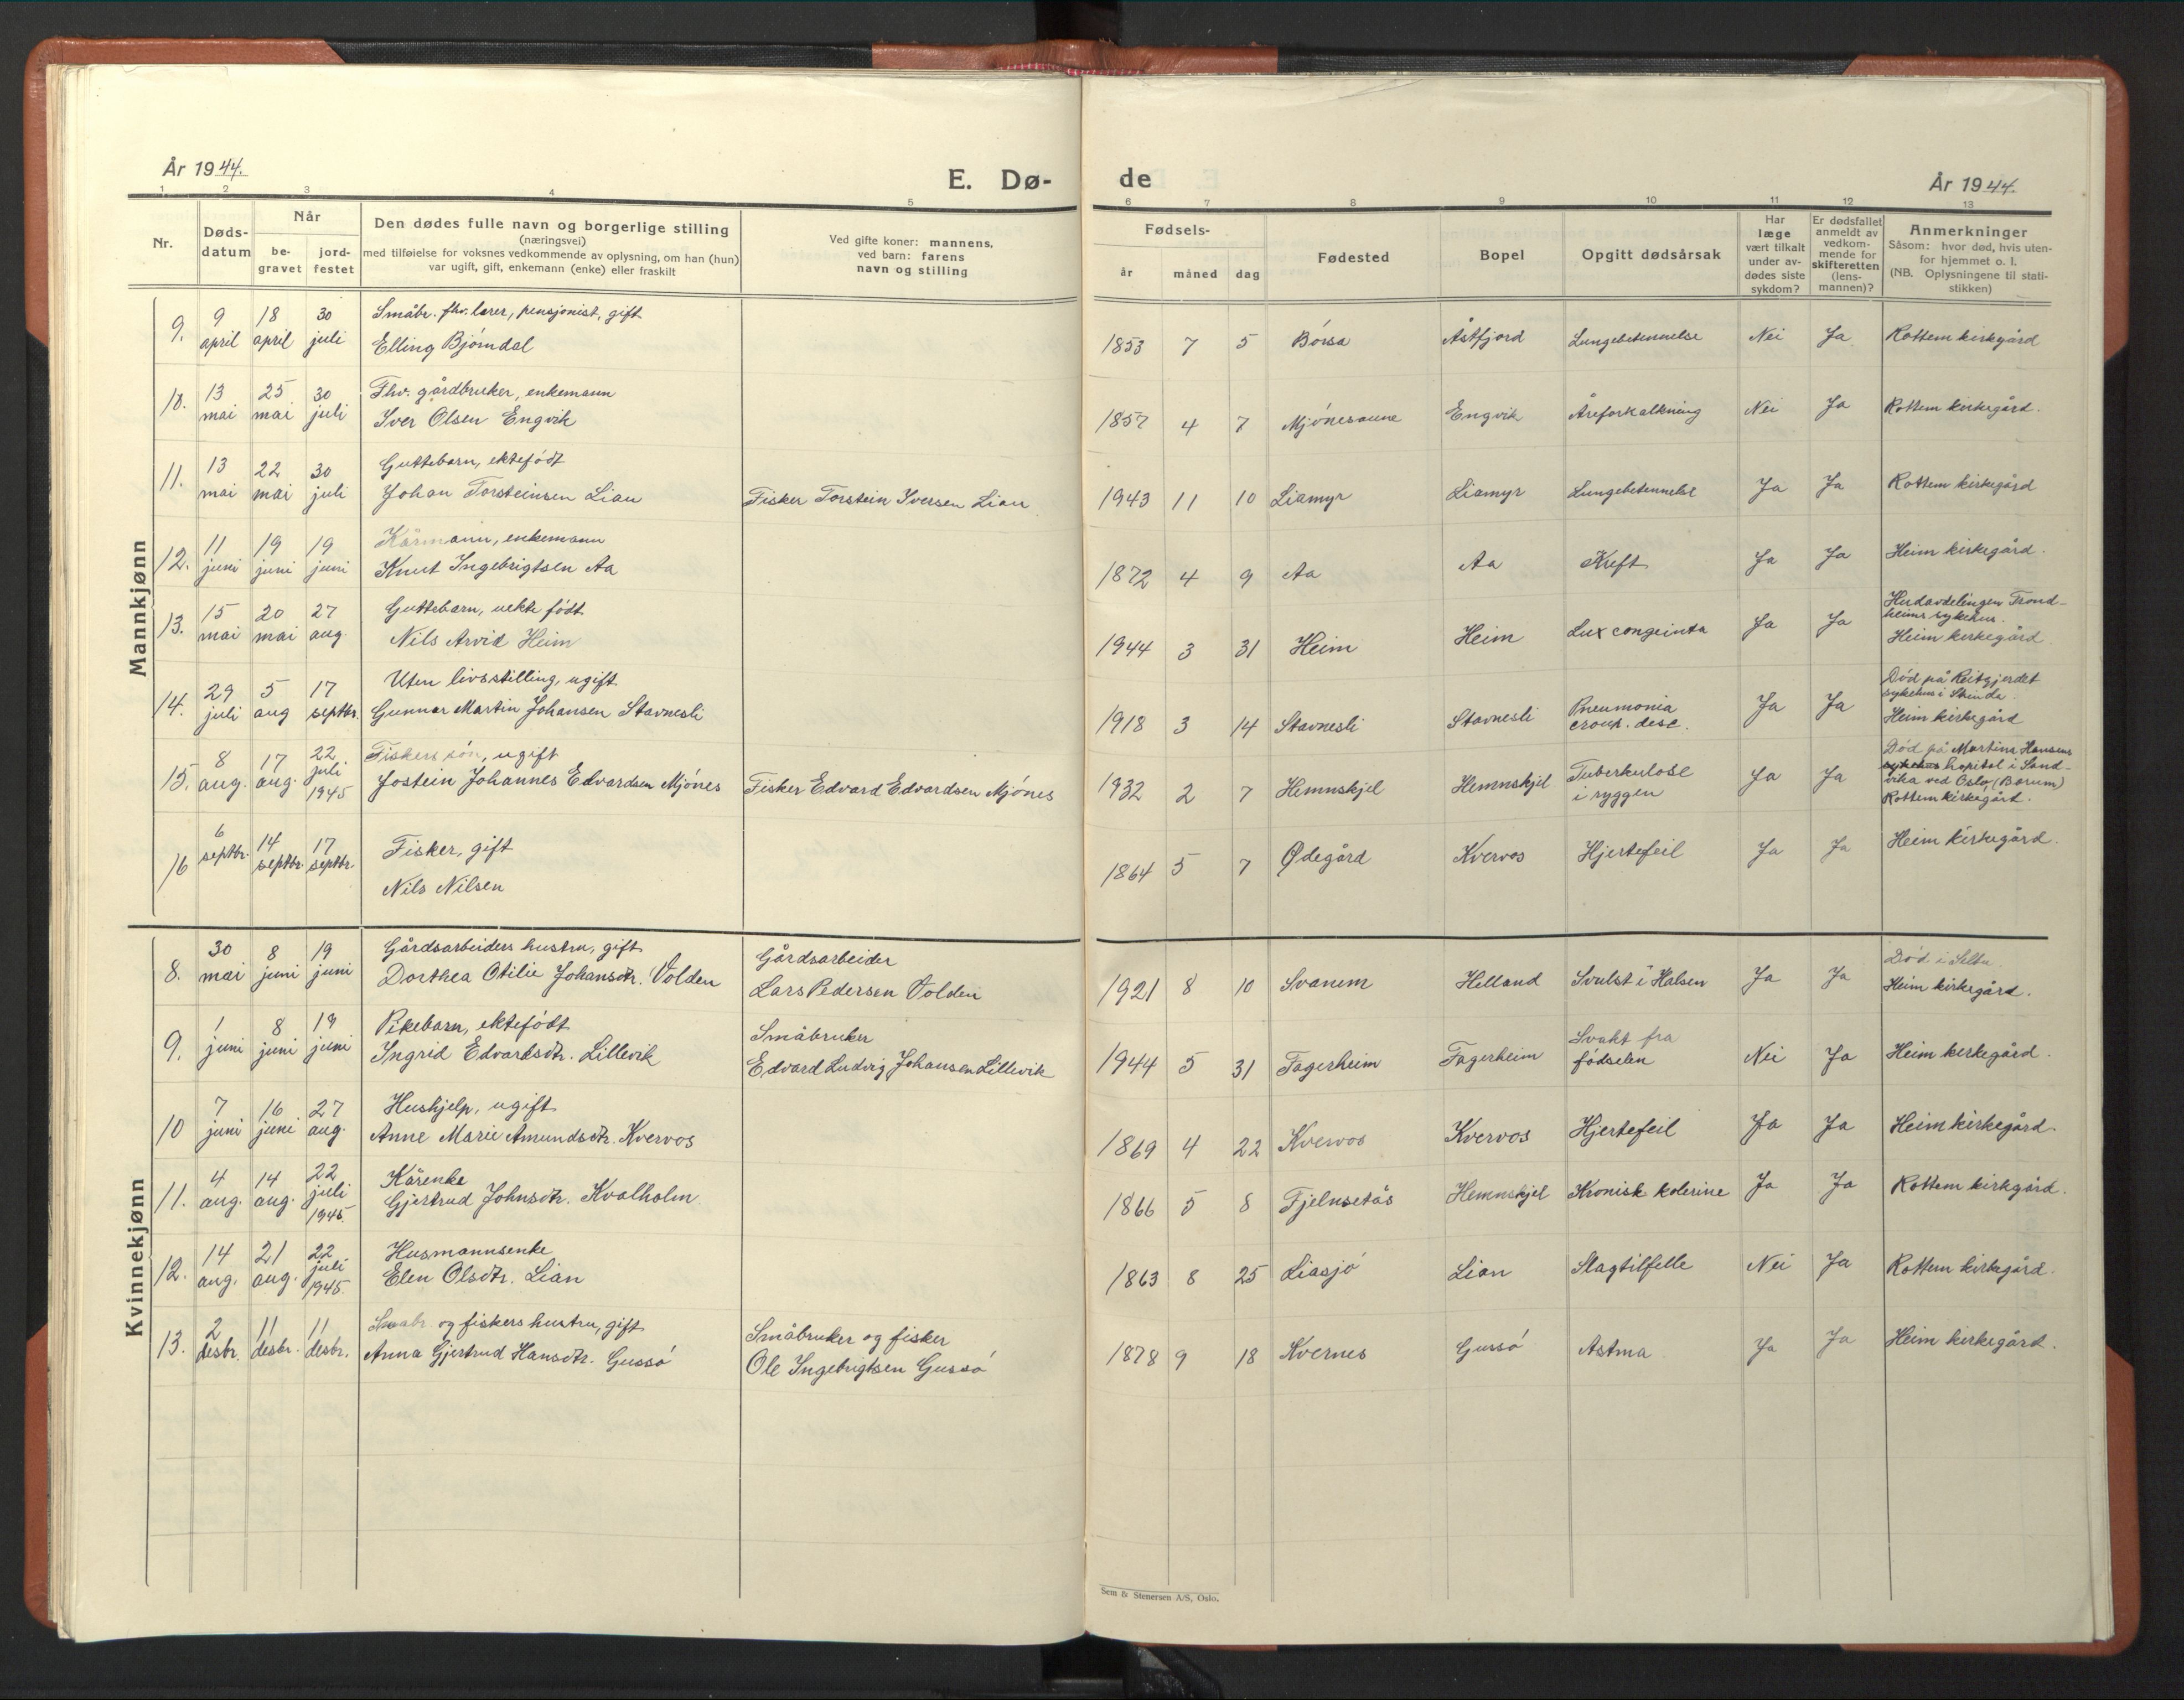 År 1944.
E. Dø-
de
År 1944.
1 2 3 4 5 6 7 8 9 10 11 12 13
Nr.
Døds-
datum
Når
be-
gravet
jord-
festet
Den dødes fulle navn og borgerlige stilling
(næringsvei)
med tilføielse for voksnes vedkommende av oplysning, om han (hun)
var ugift, gift, enkemann (enke) eller fraskilt
Ved gifte koner: mannens,
ved barn: farens
navn og stilling
Fødsels-
år
måned
dag
Fødested
Bopel
Opgitt dødsårsak
Har
læge
vært tilkalt
under av-
dødes siste
sykdom?
Er dødsfallet
anmeldt av
vedkom-
mende for
skifteretten
(lens-
mannen)?
Anmerkninger
Såsom: hvor død, hvis uten-
for hjemmet o. l.
(NB. Oplysningene til stati-
stikken)
Mannkjønn
9. 9 april 18 april 30 juli
Småbr. fhv. lærer, pensjonist, gift
Elling Bjørndal
1853 7 5 Børsa Åstfjord Lungebetennelse Nei Ja Rottem kirkegård
10. 13 mai 25 mai 30 juli
Fhv. gårdbruker, enkemann
Iver Olsen Engvik
1857 4 7 Mjønesaune Engvik Åreforkalkning Nei Ja Rottem kirkegård.
11. 13 mai 22 mai 30 juli
Guttebarn, ektefødt
Johan Torsteinsen Lian
Fisker Torstein Iversen Lian
1943 11 10 Liamyr Liamyr Lungebetennelse Ja Ja Rottem kirkegård
12. 11 juni 19 juni 19 juni
Kårmann, enkemann
Knut Ingebrigtsen Aa
1872 4 9 Aa Aa Kreft Ja Ja Heim kirkegård.
13. 15 mai 20 mai 27 aug.
Guttebarn, uekte født
Nils Arvid Heim
1944 3 31 Heim Heim Lux congeinta Ja Ja
Hudavdelingen Trond-
heims sykehus.
Heim kirkegård
14. 29 juli 5 aug 17 septbr.
Uten livsstilling, ugift
Gunnar Martin Johansen Stavnesli
1918 3 14 Stavnesli Stavnesli
Pneumonia
croup. desc.
Ja Ja
Død på Reitgjerdet
sykehus i Strinda.
Heim kirkegård
15. 8 aug. 17 aug. 22 juli 1945
Fiskers søn, ugift
Jostein Johannes Edvardsen Mjønes
Fisker Edvard Edvardsen Mjønes
1932 2 7 Hemnskjel Hemnskjel
Tuberkulose
i ryggen
Ja Ja
Død på Martina Hansens
sykehus hospital i Sand-
vika ved Oslo, (Bærum)
Rottem kirkegård.
16 6 septbr. 14 septbr. 17 septbr.
Fisker, gift
Nils Nilsen
1864 5 7 Ødegård Kvervos Hjertefeil Ja Ja Heim kirkegård.
Kvinnekjønn
8. 30 mai 8 juni 19 juni
Gårdsarbeiders hustru, gift
Dorthea Otilie Johansdtr. Volden
Gårdsarbeider
Lars Pedersen Volden
1921 8 10 Svanem Helland Svulst i Halsen Ja Ja
Død i
Heim kirkegård.
9. 1 juni 8 juni 19 juni
Pikebarn, ektefødt
Ingrid Edvardsdtr. Lillevik
Småbruker
Edvard Ludvig Johansen Lillevik
1944 5 31 Fagerheim Fagerheim
Svakt fra
fødselen
Nei Ja Heim kirkegård.
10 7 juni 16 juni 27 aug.
Hushjelp, ugift
Anne Marie Amundsdtr. Kvervos
1869 4 22 Kvervos Kvervos Hjertefeil Ja Ja Heim kirkegård.
11. 4 aug. 14 aug. 22 juli 1945.
Kårenke
Gjertrud Johnsdtr. Kvalholm.
1866 5 8 Fjelnsetås Hemnskjel Kronisk kolerine Ja Ja Rottem kirkegård.
12. 14 aug. 21 aug. 22 juli 1945.
Husmannsenke
Elen Olsdtr. Lian
1863 8 25 Liasjø Lian Slagtilfelle Nei Ja Rottem kirkegård.
13. 2 desbr. 11 desbr. 11 desbr.
Småbr. og fiskers hustru, gift
Anna Gjertrud Hansdtr. Gussø
Småbruker og fisker
Ole Ingebrigtsen Gussø
1878 9 18 Kvernes Gussø Astma Ja Ja Heim kirkegård.
Sem & Stenersen A/S, Oslo.